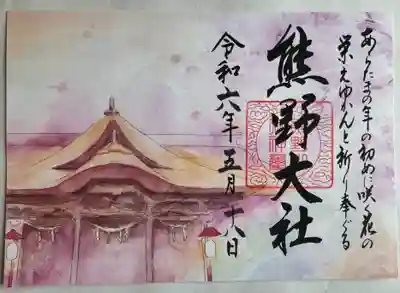 あらたまの年の初めに咲く花の
栄えゆかんと祈り奉る
熊野大社
令和六年五月十八日